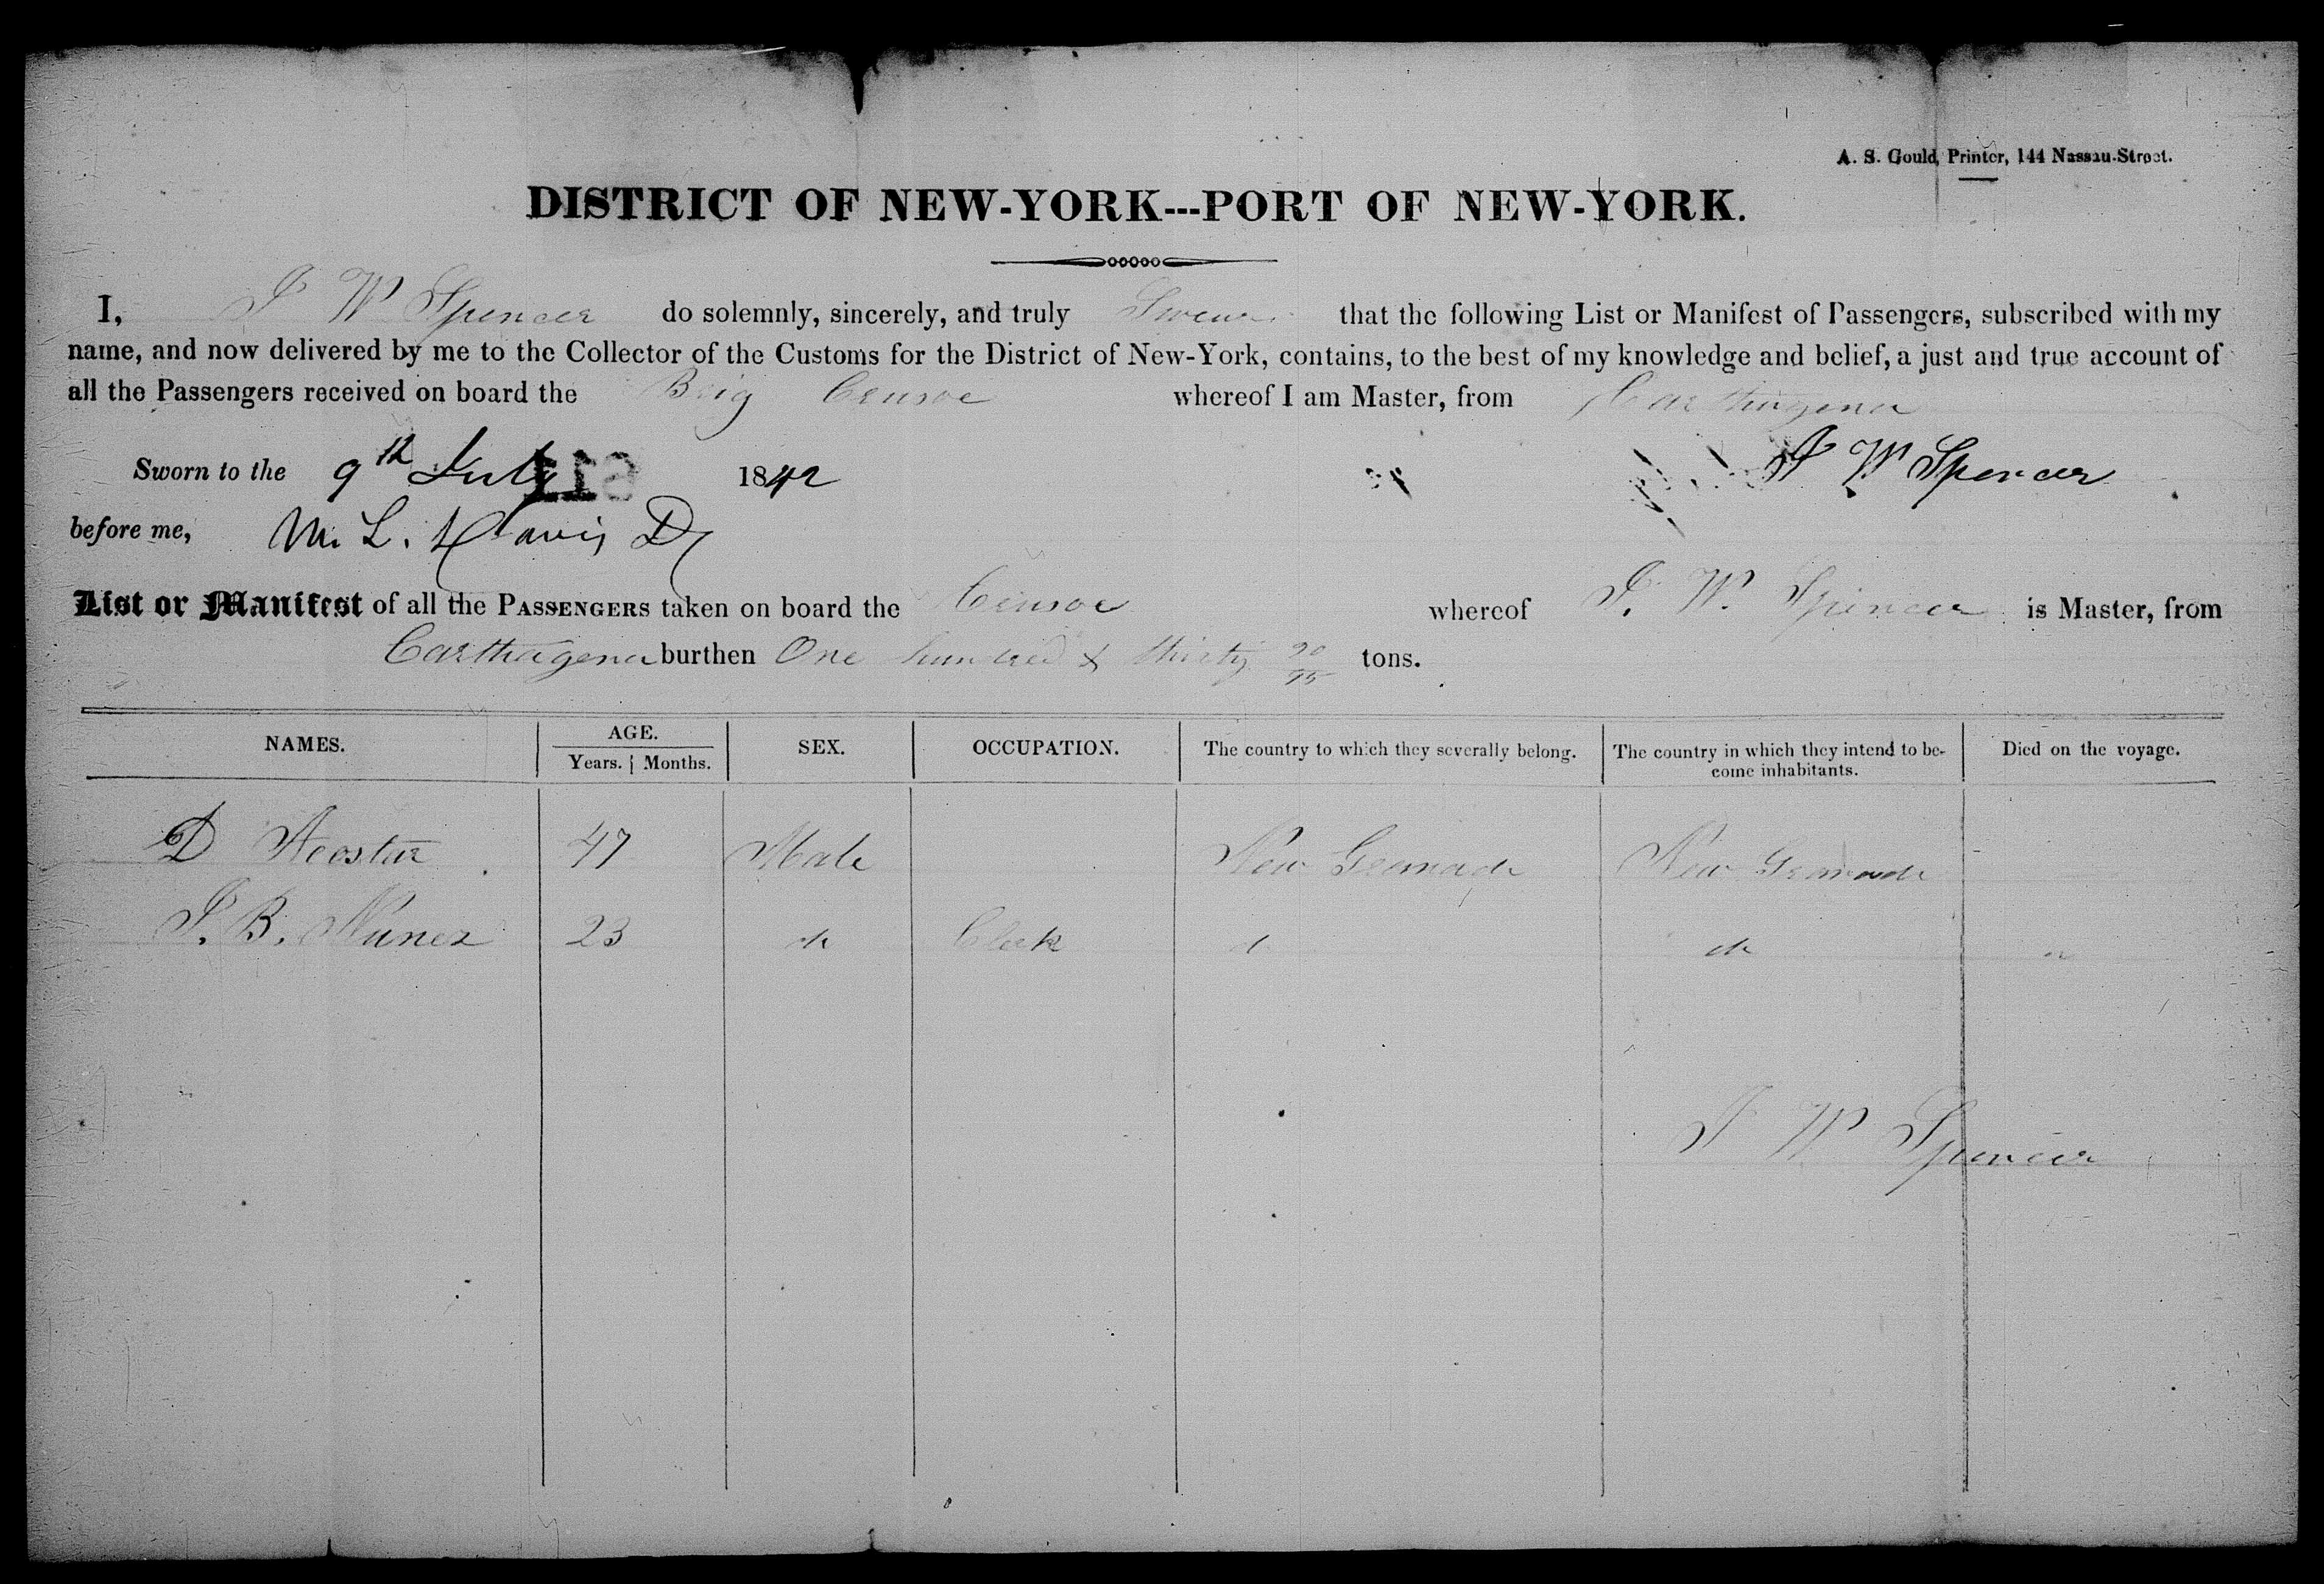 A. S. Gould, Printer, 144 Nassau-Street.
DISTRICT OF NEW-YORK---PORT OF NEW-YORK.
I, J W Spencer do solemnly, sincerely, and truly Swear that the following List or Manifest of Passengers, subscribed with my
name, and now delivered by me to the Collector of the Customs for the District of New-York, contains, to the best of my knowledge and belief, a just and true account of
all the Passengers received on board the Brig Crusoe whereof I am Master, from Carthagena
Sworn to the 9th July 1842 J W Spencer
before me, M. L. Davis
List or Manifest of all the PASSENGERS taken on board the Crusoe whereof J. W. Spencer is Master, from
Carthagena burthen One hundred & thirty 90/95 tons.
NAMES. AGE. SEX. OCCUPATION. The country to which they severally belong. The country in which they intend to be- Died on the voyage.
Years. Months. come inhabitants.
D Acosta 47 Male New Granada New Granada
J. B. Nunez 23 do Clerk do do
J W Spencer